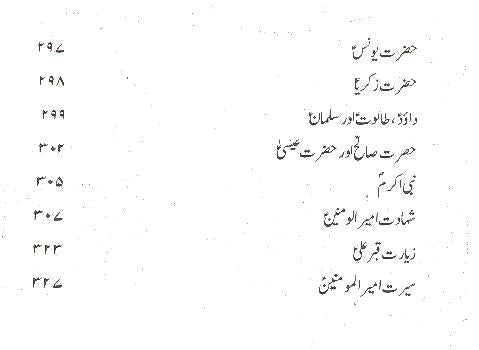 حضرت یونسؑ ۲۹۷
حضرت زکریاؑ ۲۹۸
داؤدؑ، طالوتؑ اور سلمانؑ ۲۹۹
حضرت صالحؑ اور حضرت عیسیٰؑ ۳۰۲
نبی اکرمؐ ۳۰۵
شہادت امیر الومنینؑ ۳۰۷
زیارت قبر علیؑ ۳۲۳
سیرت امیر المومنینؑ ۳۲۷